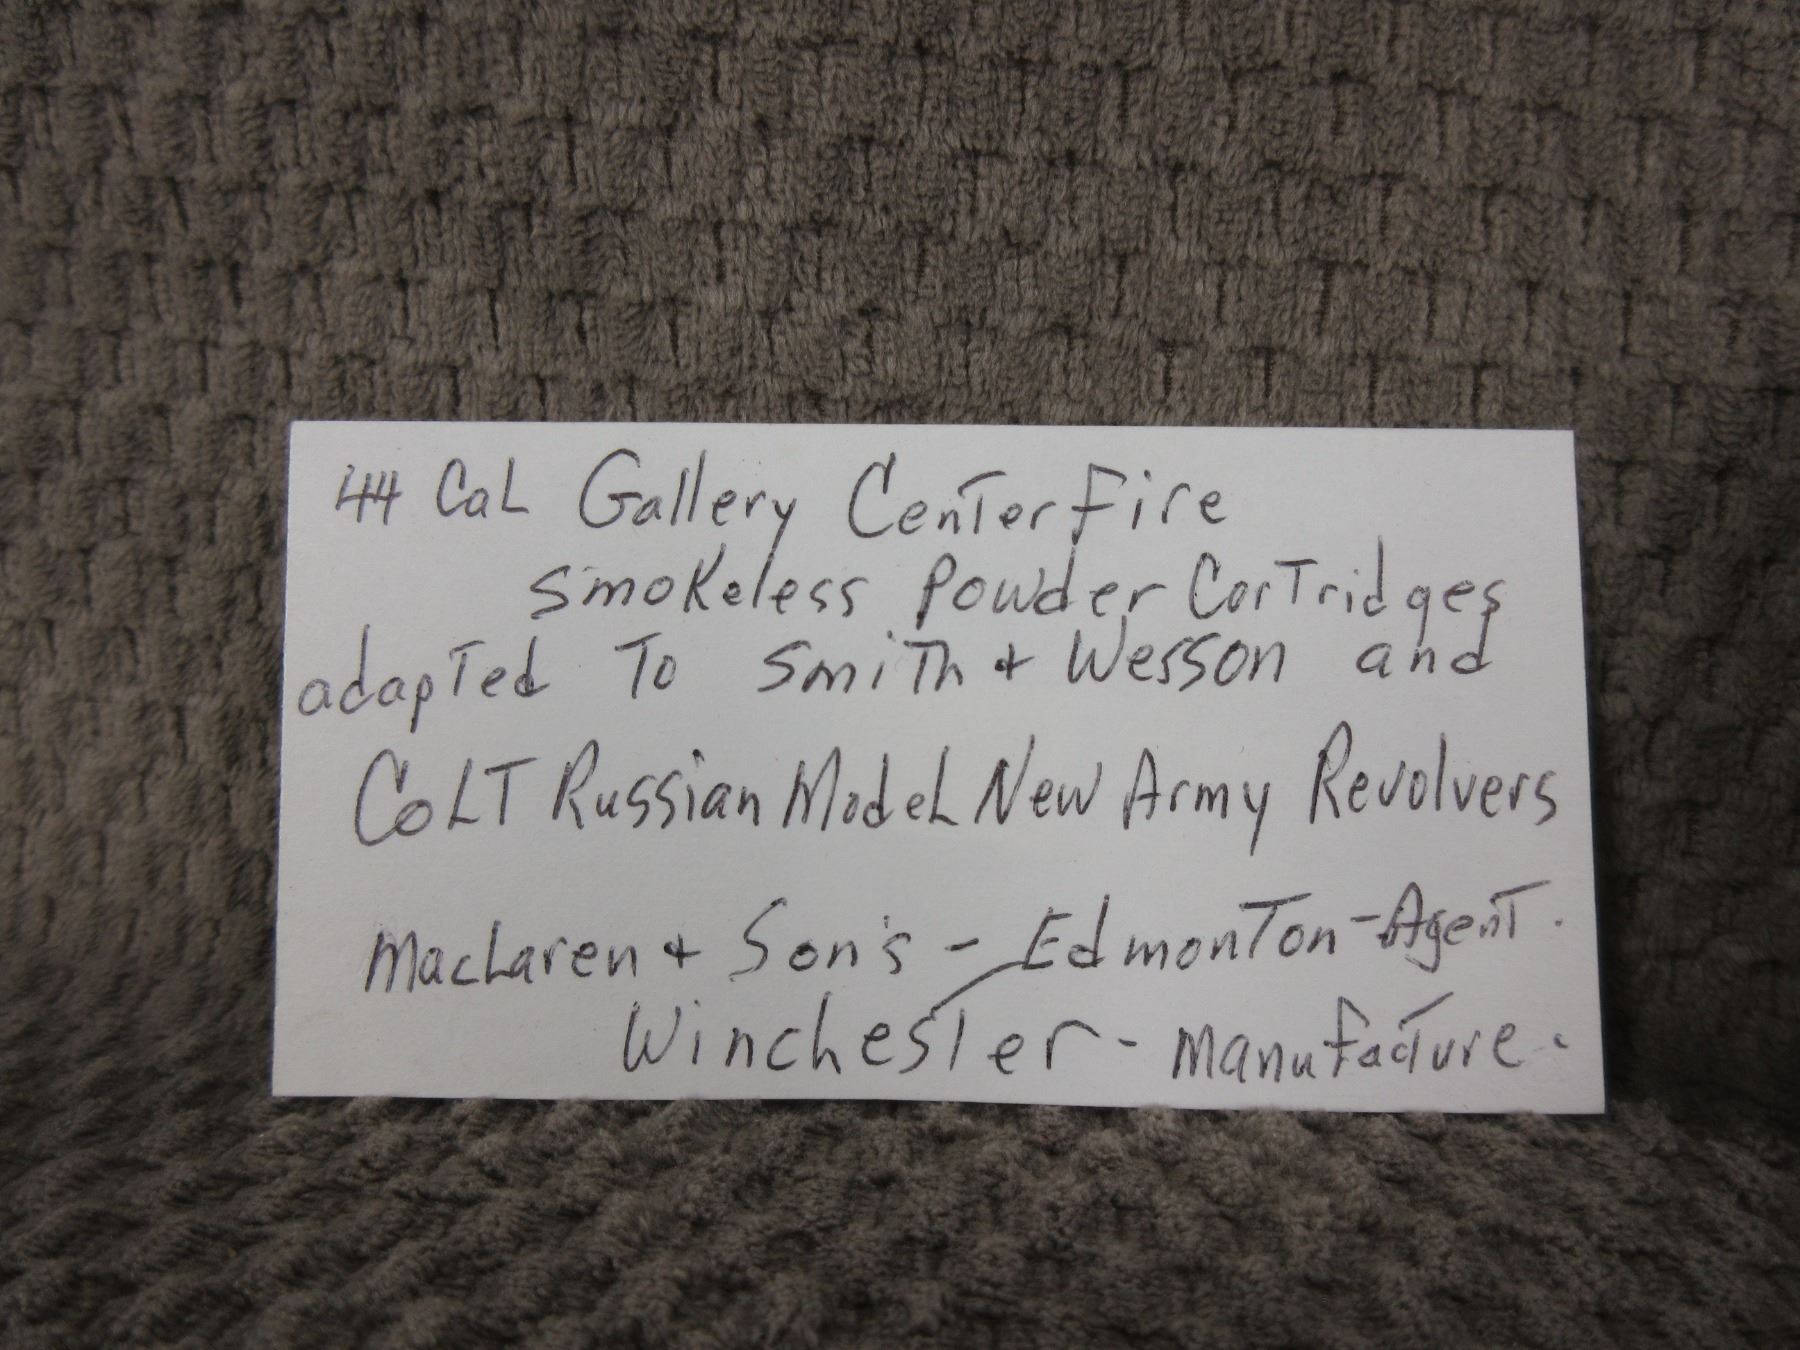 44 Cal Gallery Centerfire
Smokeless Powder Cartridges
adapted To Smith + Wesson and
Colt Russian Model New Army Revolvers
MacLaren + Son's - Edmonton - Agent.
Winchester - Manufacture.